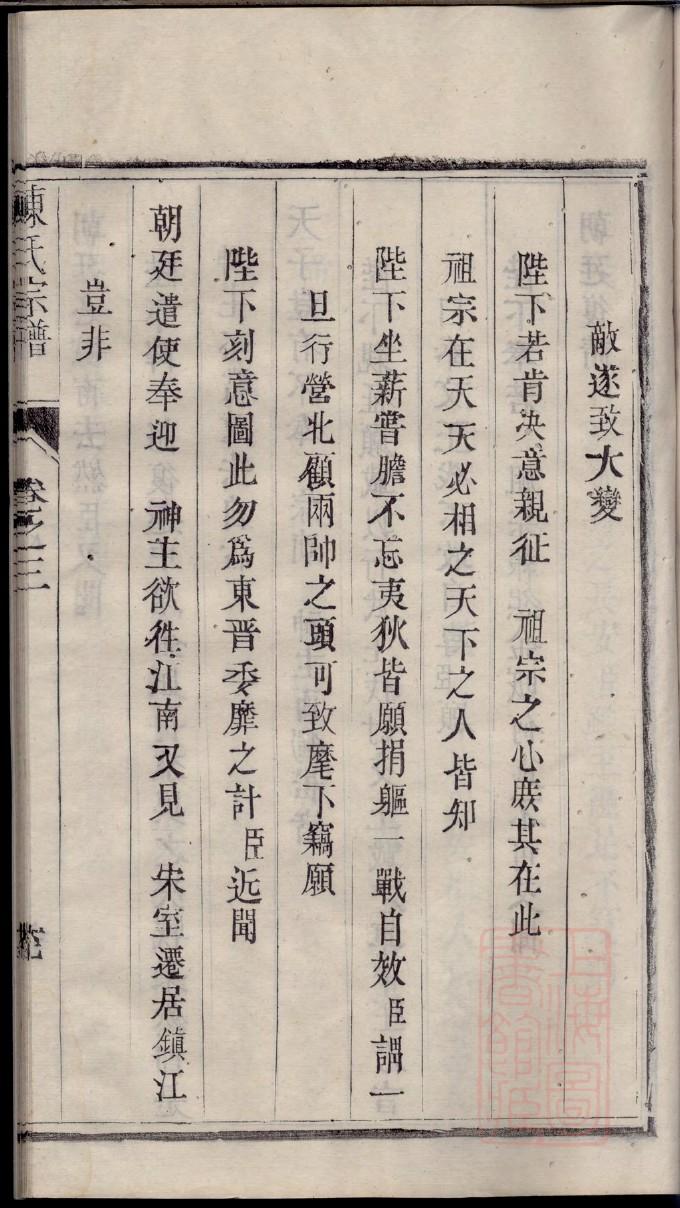 敵遂致大變
陛下若肯决意親征　祖宗之心庻其在此
祖宗在天天必相之天下之人皆知
陛下坐薪嘗膽不忘夷狄皆願捐軀一戰自效臣謂一
旦行營北顧兩帥之頭可致麾下竊願
陛下刻意圖此勿爲東晋委靡之計臣近聞
朝廷遣使奉迎　神主欲徃江南又見　朱室遷居鎮江
豈非
陳氏宗譜
卷之三